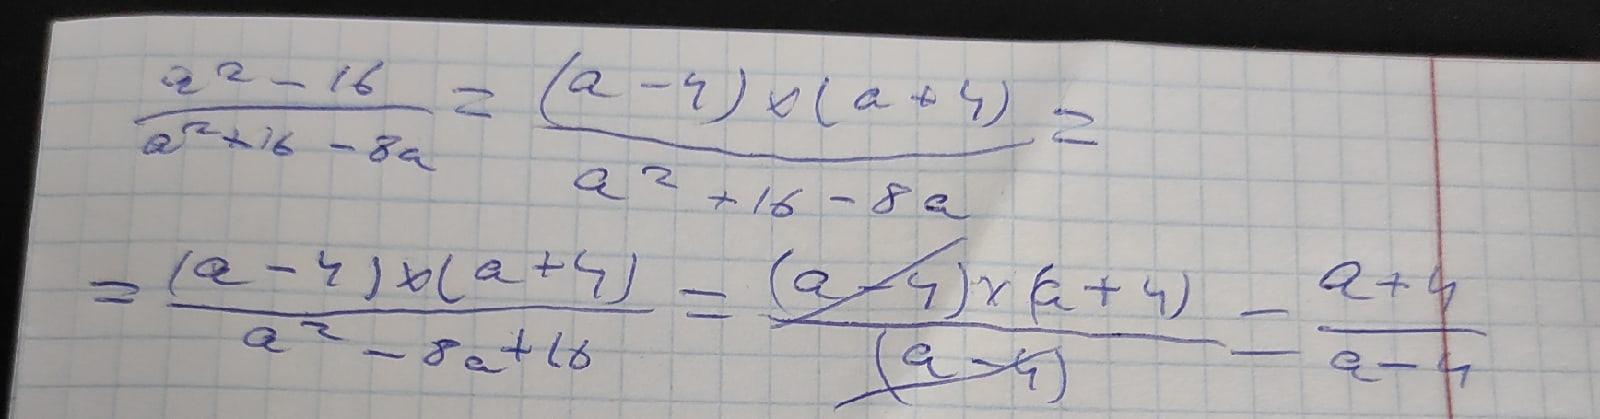 (a² - 16)/(a² + 16 - 8a) = ((a - 4) × (a + 4))/(a² + 16 - 8a) =
= ((a - 4) × (a + 4))/(a² - 8a + 16) = ((a - 4) × (a + 4))/((a - 4)) = (a + 4)/(a - 4)